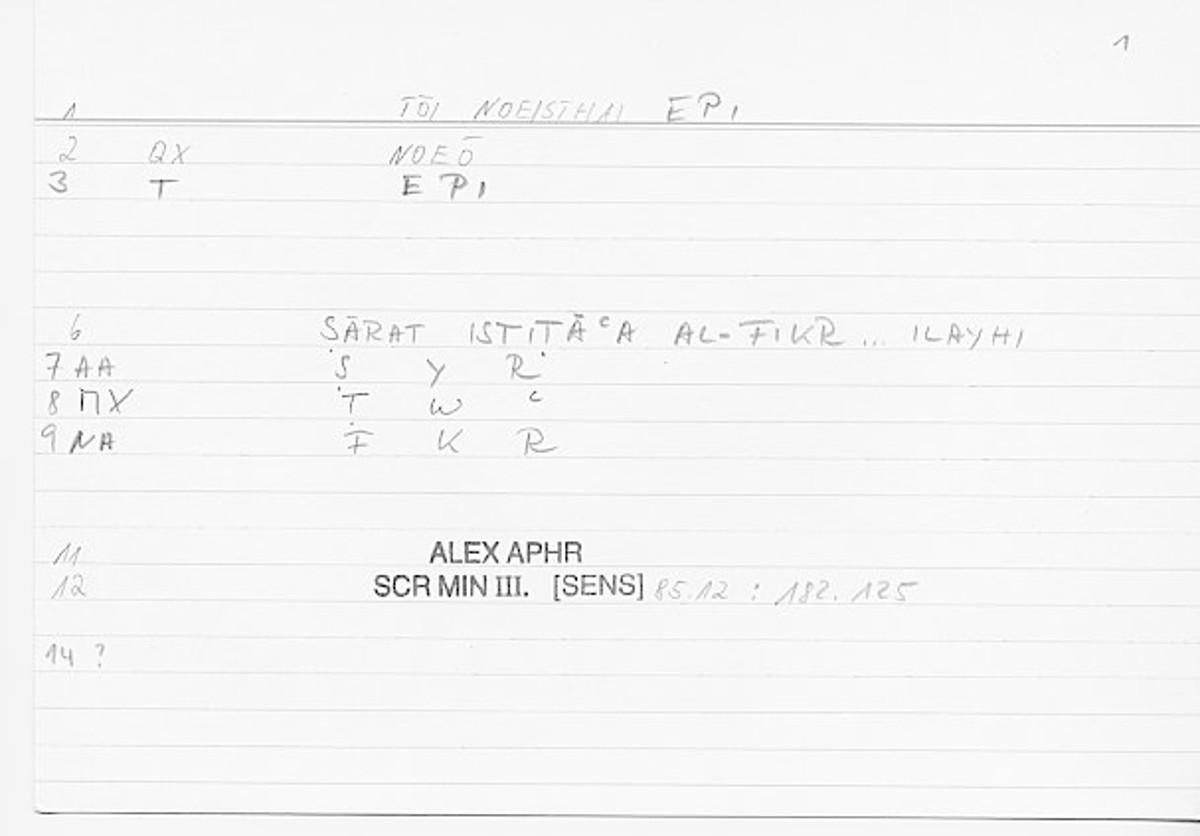 1
1 TŌI NOEISTHAI EPI
2 QX NOEŌ
3 T EPI
6 ṢĀRAT ISTIṬĀʿA AL-FIKR... ILAYHI
7 AA Ṣ Y R
8 ΠX Ṭ W ʿ
9 NA F K R
11 ALEX APHR
12 SCR MIN III. [SENS] 85.12 : 182.125
14 ?